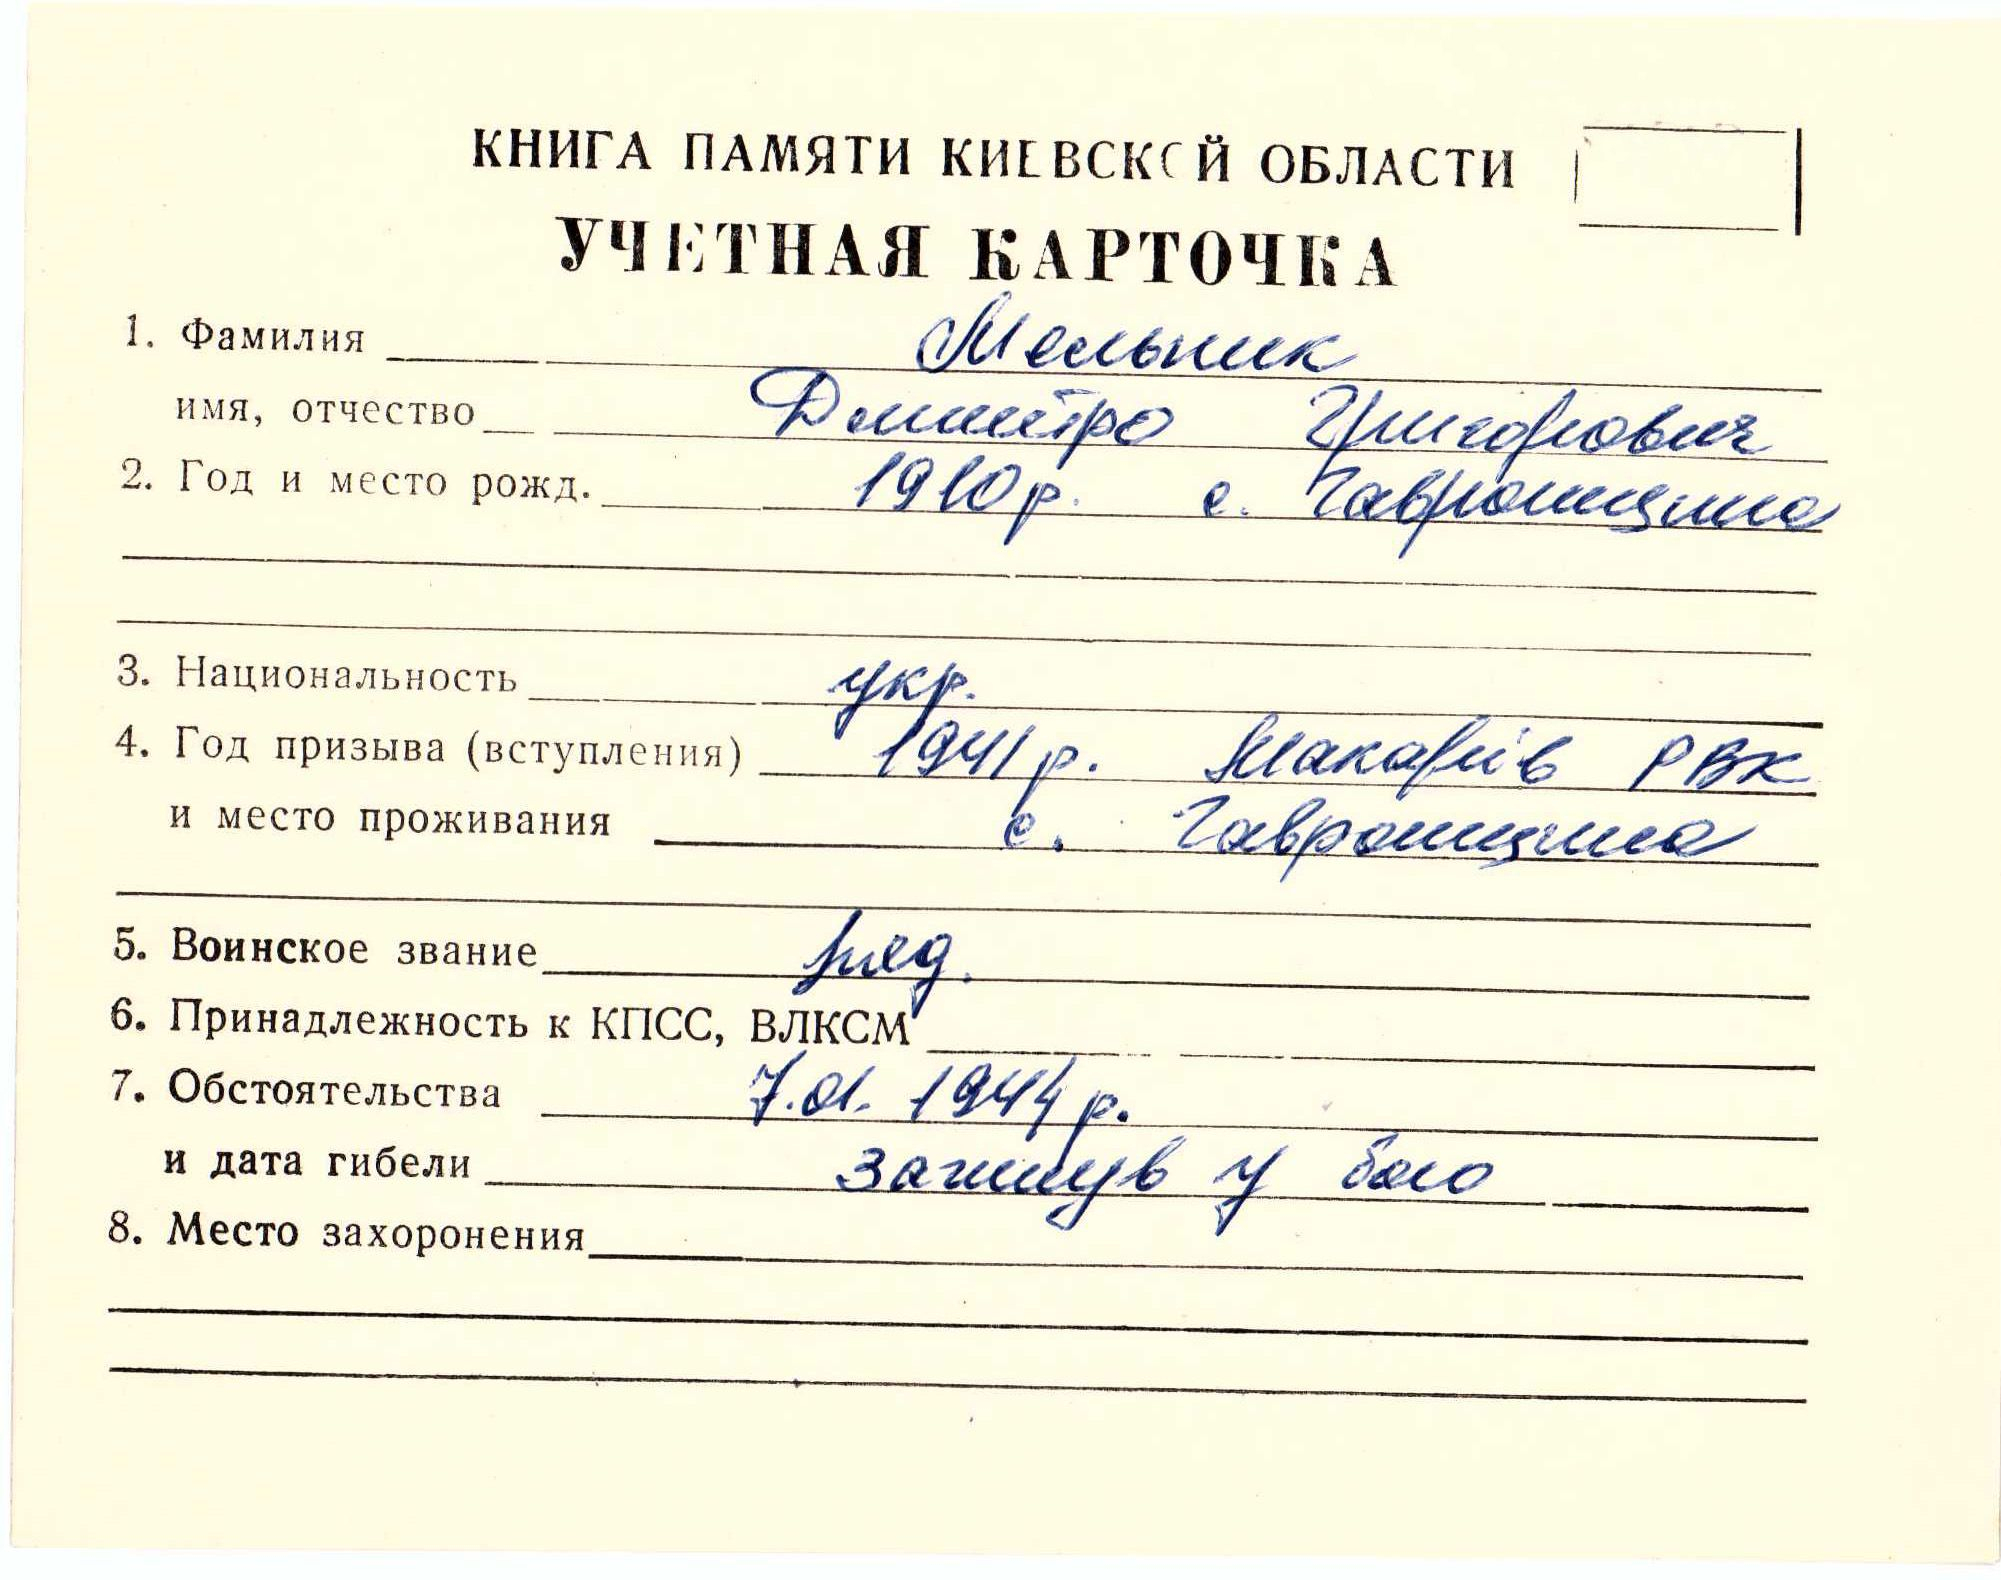 КНИГА ПАМЯТИ КИЕВСКОЙ ОБЛАСТИ
УЧЕТНАЯ КАРТОЧКА
1. Фамилия Мельник
имя, отчество Дмитро Григорович
2. Год и место рожд. 1910 р. с. Гавронщина
3. Национальность укр.
4. Год призыва (вступления) 1941 р. Макарів РВК
и место проживания с. Гавронщина
5. Воинское звание ряд.
6. Принадлежность к КПСС, ВЛКСМ
7. Обстоятельства 7.01. 1944 р.
и дата гибели загинув у бою
8. Место захоронения